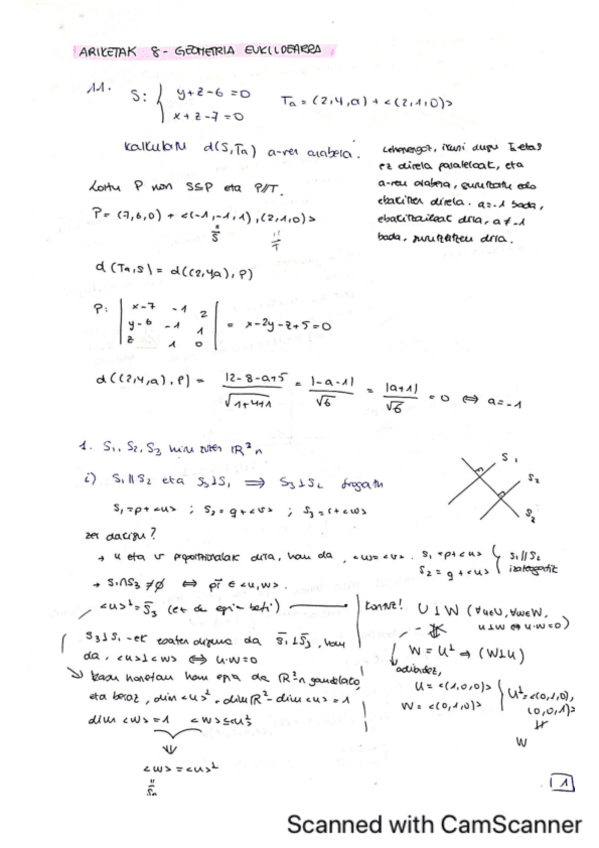 ARIKETAK 8 - GEOMETRIA EUKLIDEARRA
11. S: { y+z-6=0
x+z-7=0
Ta = (2,4,a) + <(2,1,0)>
Kalkulatu d(S,Ta) a-ren arabera.
Lehenengo, ikusi dugu Ta eta S
ez direla paraleloak, eta
a-ren arabera, gurutzatu edo
ebakitzen direla. a=-1 bada,
ebakitzaileak dira, a≠-1
bada, gurutzatzen dira.
Lortu P non S⊆P eta P//T.
P = (7,6,0) + <(-1,-1,1),(2,1,0)>
d(Ta,S) = d((2,4,a),P)
P: | x-7 -1 2
y-6 -1 1
z 1 0 | = x-2y-z+5=0
d((2,4,a),P) = |2-8-a+5| / √1+4+1 = |-a-1| / √6 = |a+1| / √6 = 0 ⇔ a=-1
1. S₁, S₂, S₃ hiru zuzen ℝ²-n
i) S₁ ∥ S₂ eta S₃⊥S₁ ⟹ S₃⊥S₂ frogatu
S₁ = p+<u> ; S₂ = q+<v> ; S₃ = r+<w>
zer dakigu?
→ u eta v proportzionalak dira, hau da, <u>=<v>. S₁=p+<u>
S₂ = q+<u> } S₁∥S₂
izateagatik
→ S₁∩S₃ ≠ ∅ ⇔ pr ∈ <u,w>.
<u>⊥ = S₃ (ez da beti)
Kontuz! U⊥W (∀u∈U, ∀w∈W,
u⊥w ⇔ u·w=0)
W = U⊥ ⇒ (W⊥U)
adibidez,
U = <(1,0,0)>
W = <(0,1,0)>
U⊥=<(0,1,0),
(0,0,1)>
W
S₃⊥S₁ -et esaten digu da S₁⊥S₃, hau
da, <u>⊥<w> ⇔ u·w=0
kasu honetan hau ℝ²-n gaude
eta beraz, dim<u>⊥ = dimℝ² - dim<u> = 1
dim<w> = 1 <w>⊆<u>⊥
<w> = <u>⊥
1
Scanned with CamScanner